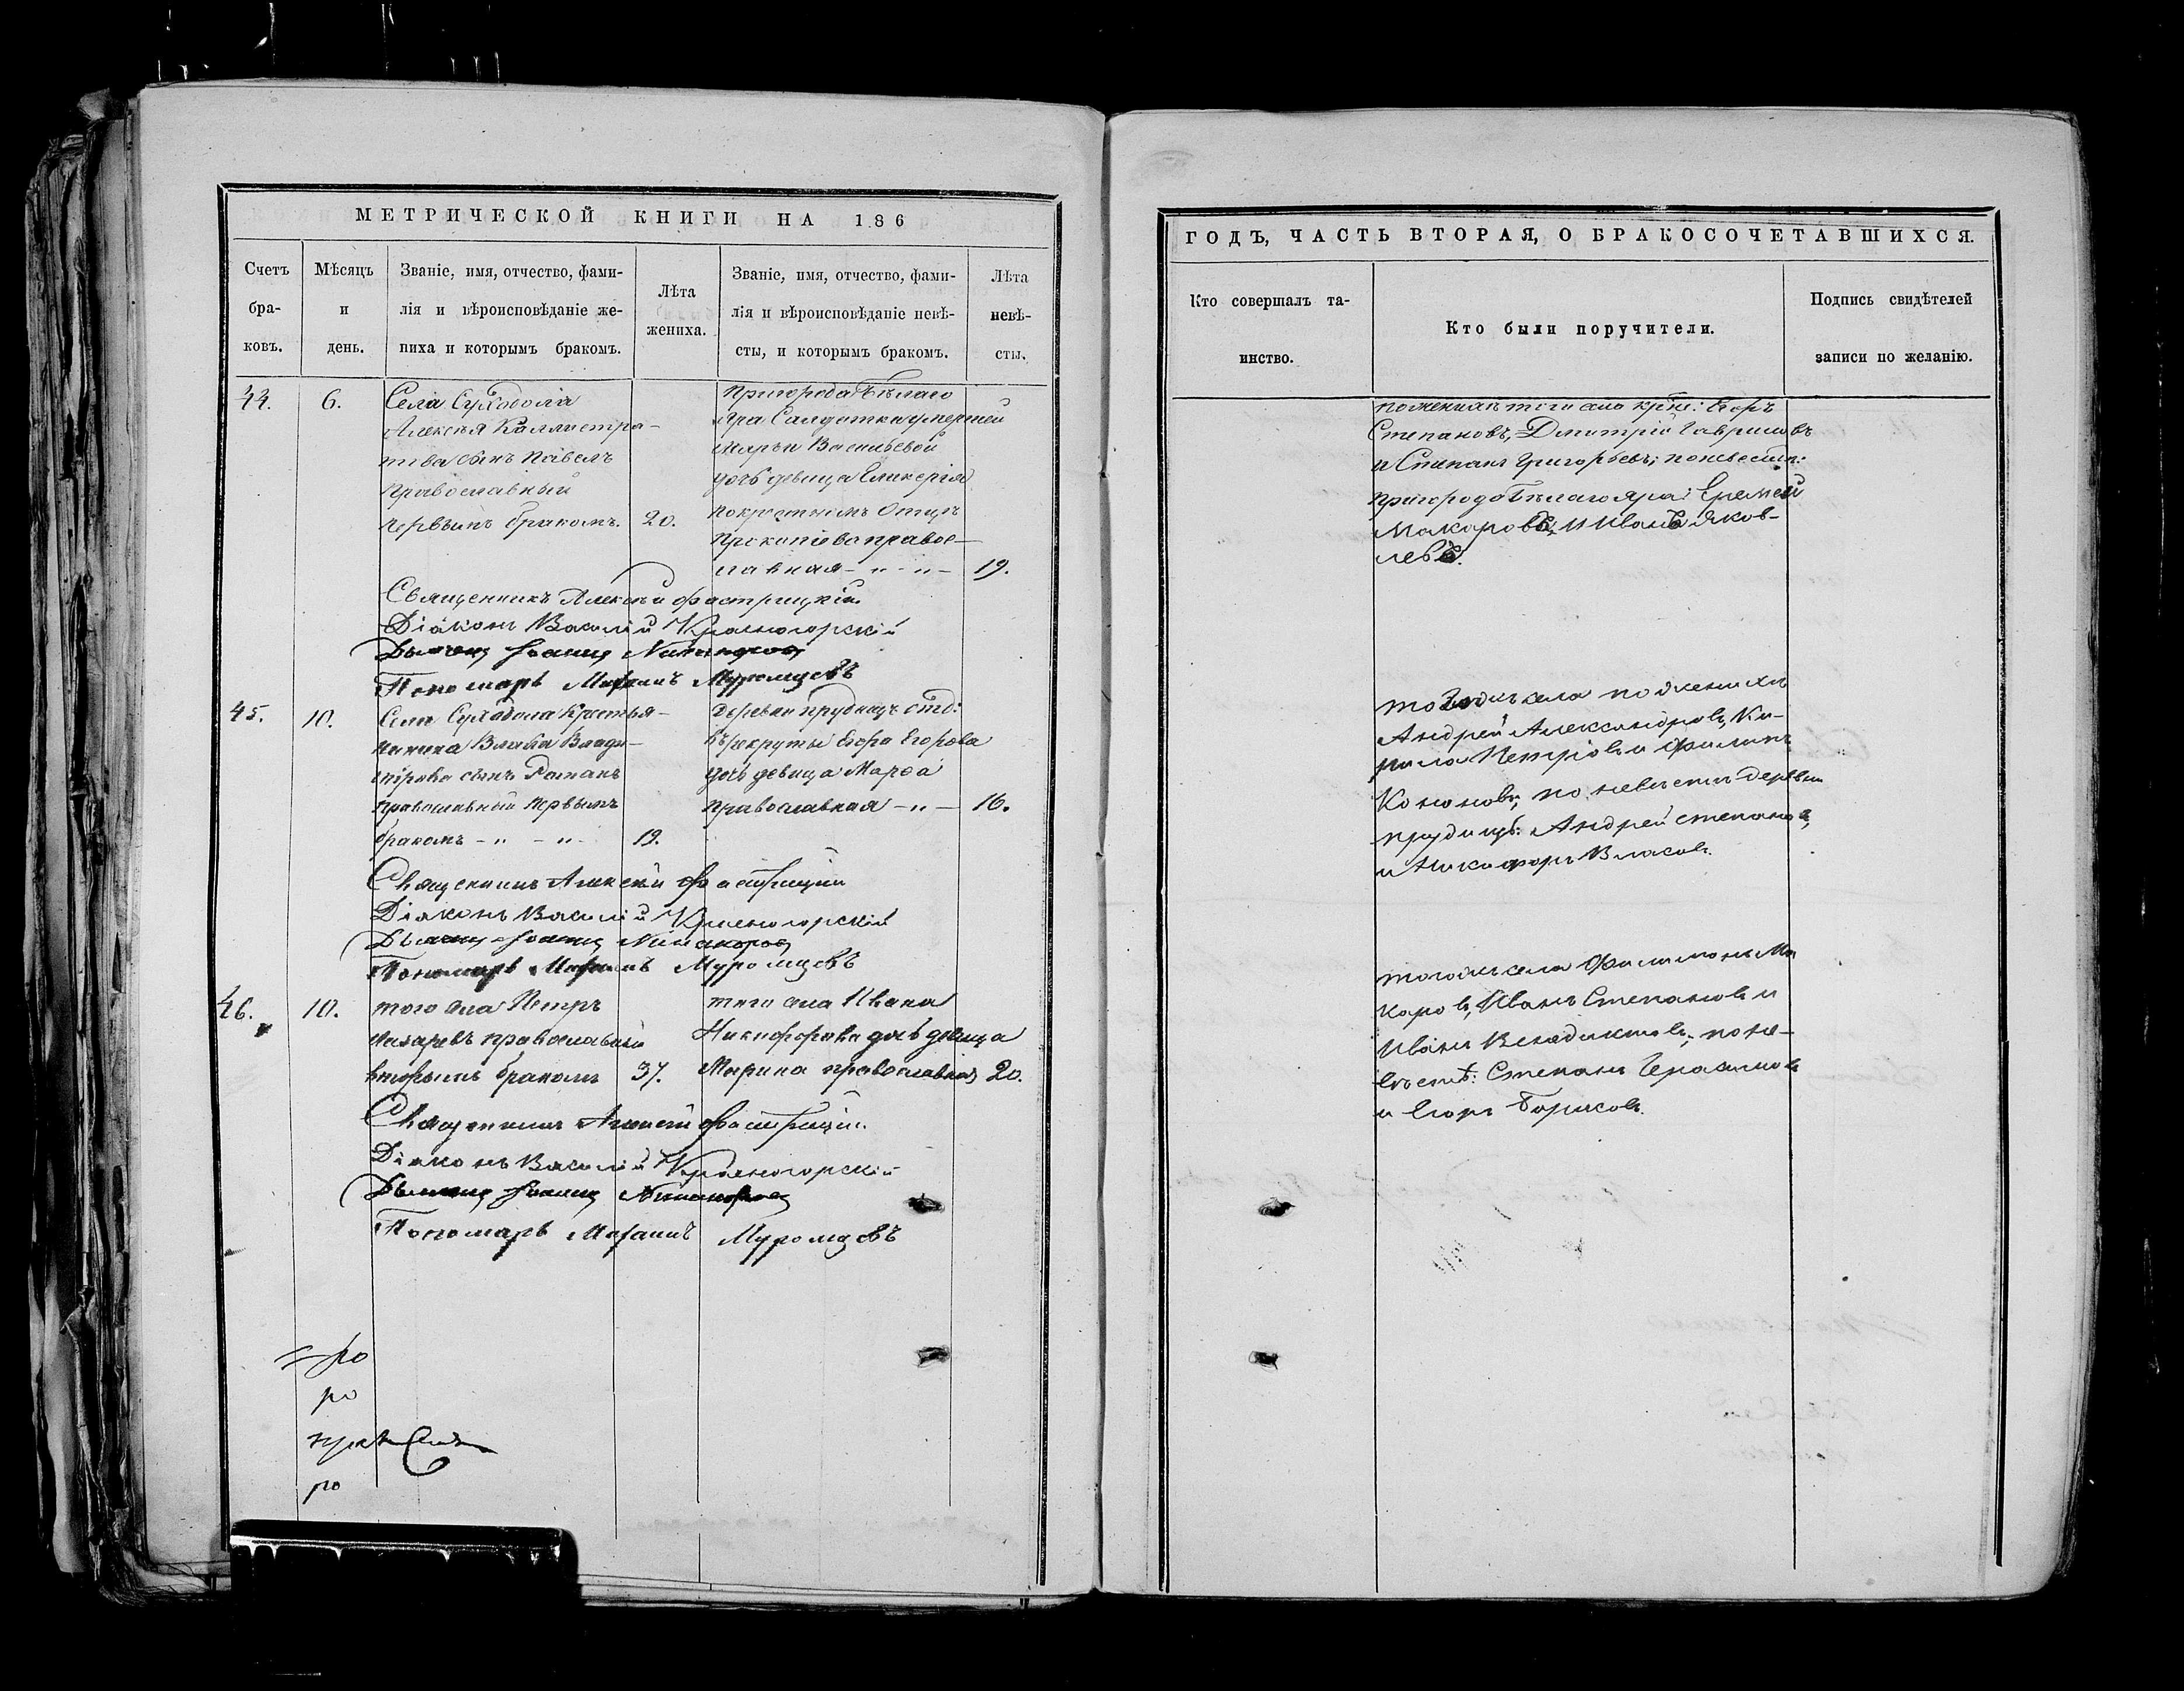 МЕТРИЧЕСКОЙ КНИГИ НА 186
Счетъ бра- ковъ.
Мѣсяцъ и день.
Званіе, имя, отчество, фами-
лія и вѣроисповѣданіе же-
ниха и которымъ бракомъ.
Лѣта
жениха.
Званіе, имя, отчество, фами-
лія и вѣроисповѣданіе невѣ-
сты, и которымъ бракомъ.
Лѣта
невѣ-
сты.
44.
6.
Села Суходола
Алексѣя Каллистра-
това сынъ Павелъ
православный
первымъ бракомъ.
20.
Пригорода Бѣлаго
Яра Салдатки умершей
Марьи Васильевой
дочь девица Гликерія
по крестномъ Отцѣ
Прокопіева правос-
лавная - " - " -
19.
Священникъ Алексѣй
Діаконъ Василій Красногорскій
Пономарь Муромцовъ
45.
10.
Села Суходола Крестья-
нина Власа Влади-
мірова сынъ Романъ
православный первымъ
бракомъ - " - " -
19.
Деревни прудищъ отд:
въ рекруты Егора Егорова
дочь девица Марѳа
православная - " -
16.
Священникъ Алексѣй
Діаконъ Василій Красногорскій
Пономарь Муромцовъ
46.
10.
того села Петръ
Лазаревъ православный
вторымъ бракомъ
37.
того села Ивана
Никифорова дочь девица
Марина православная
20.
Священникъ Алексѣй
Діаконъ Василій Красногорскій
Пономарь Муромцовъ
ро
ро
ро
ГОДЪ, ЧАСТЬ ВТОРАЯ, О БРАКОСОЧЕТАВШИХСЯ.
Кто совершалъ та-
инство.
Кто были поручители.
Подпись свидѣтелей
записи по желанію.
по женихѣ того села крѣне: Егоръ
Степановъ, Дмитрій Гавриловъ
и Степанъ Григорьевъ; по невестѣ:
пригорода Бѣлаго яра: Еремей
Макаровъ, и Иванъ Яков-
левъ.
тогожъ села по женихѣ
Андрей Александровъ, Ки-
рила Петровъ и Филипъ
Кононовъ; по невестѣ деревни
прудищъ: Андрей Степановъ,
и Никифоръ Власовъ.
тогожъ села Филимонъ Ма
каровъ, Иванъ Степановъ и
Иванъ Венедиктовъ; по не-
вѣстѣ: Степанъ Герасимовъ
и Егоръ Борисовъ.